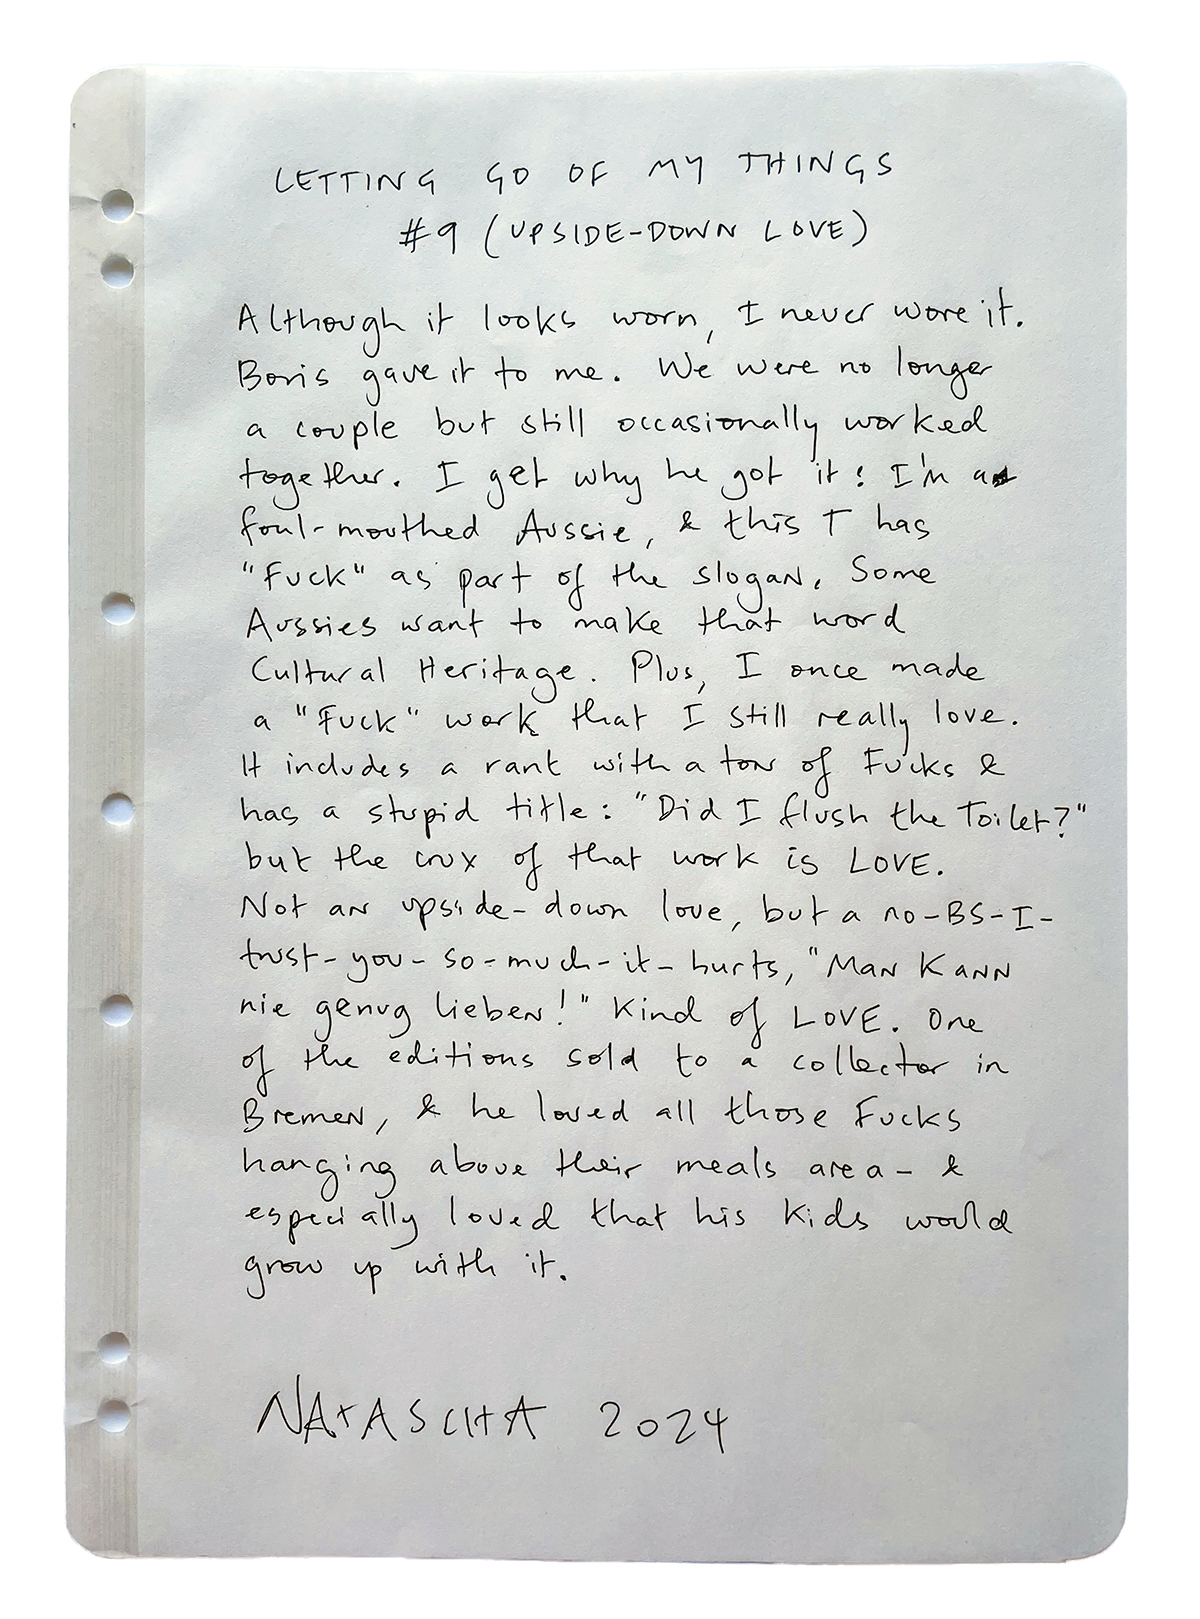 LETTING GO OF MY THINGS
#9 (UPSIDE-DOWN LOVE)
Although it looks worn, I never wore it.
Boris gave it to me. We were no longer
a couple but still occasionally worked
together. I get why he got it: I'm a
foul-mouthed Aussie, & this T has
"Fuck" as part of the slogan. Some
Aussies want to make that word
Cultural Heritage. Plus, I once made
a "Fuck" work that I still really love.
It includes a rant with a ton of Fucks &
has a stupid title: "Did I flush the Toilet?"
but the crux of that work is LOVE.
Not an upside-down love, but a no-BS-I-
trust-you-so-much-it-hurts, "Man Kann
nie genug lieben!" Kind of LOVE. One
of the editions sold to a collector in
Bremen, & he loved all those Fucks
hanging above their meals area - &
especially loved that his kids would
grow up with it.
NATASCHA 2024